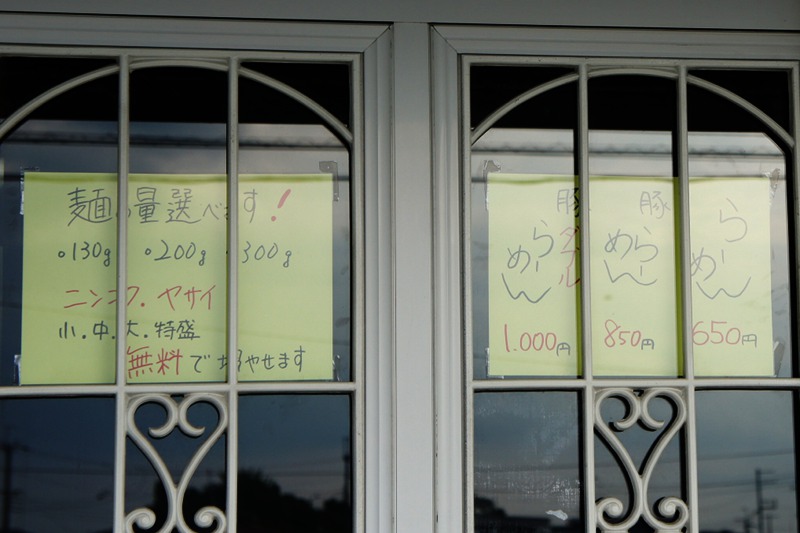 麺の量選べます!
・130g ・200g ・300g
ニンニク・ヤサイ
小・中・大・特盛
無料で増やせます
らーめん
650円
豚
らーめん
850円
豚
ダブル
らーめん
1.000円